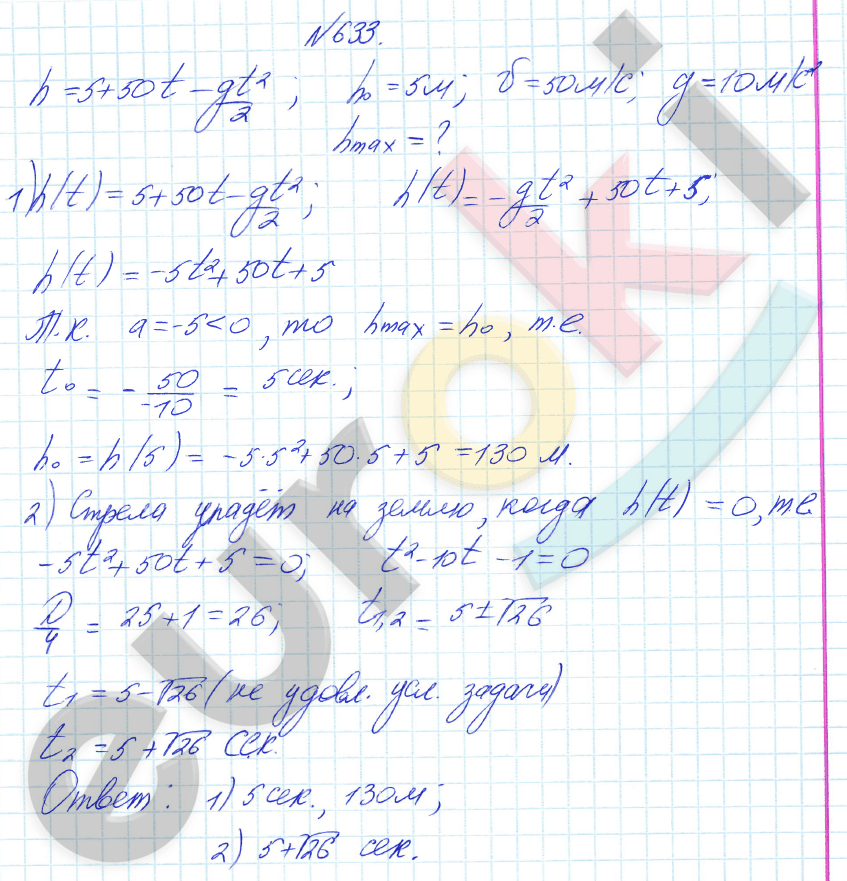 №633.
h = 5+50t - gt²/2 ; h₀ = 5м; v = 50м/с; g = 10м/с²
hmax = ?
1) h(t) = 5+50t - gt²/2 ; h(t) = - gt²/2 + 50t + 5;
h(t) = -5t² + 50t + 5
Т.к. a = -5 < 0, то hmax = h₀, т.е.
t₀ = - 50/-10 = 5 сек.;
h₀ = h(5) = -5·5² + 50·5 + 5 = 130 м.
2) Стрела упадёт на землю, когда h(t) = 0, т.е.
-5t² + 50t + 5 = 0; t² - 10t - 1 = 0
D/4 = 25 + 1 = 26; t₁,₂ = 5 ± √26
t₁ = 5 - √26 (не удовл. усл. задачи)
t₂ = 5 + √26 сек.
Ответ: 1) 5 сек., 130 м;
2) 5 + √26 сек.
euroki